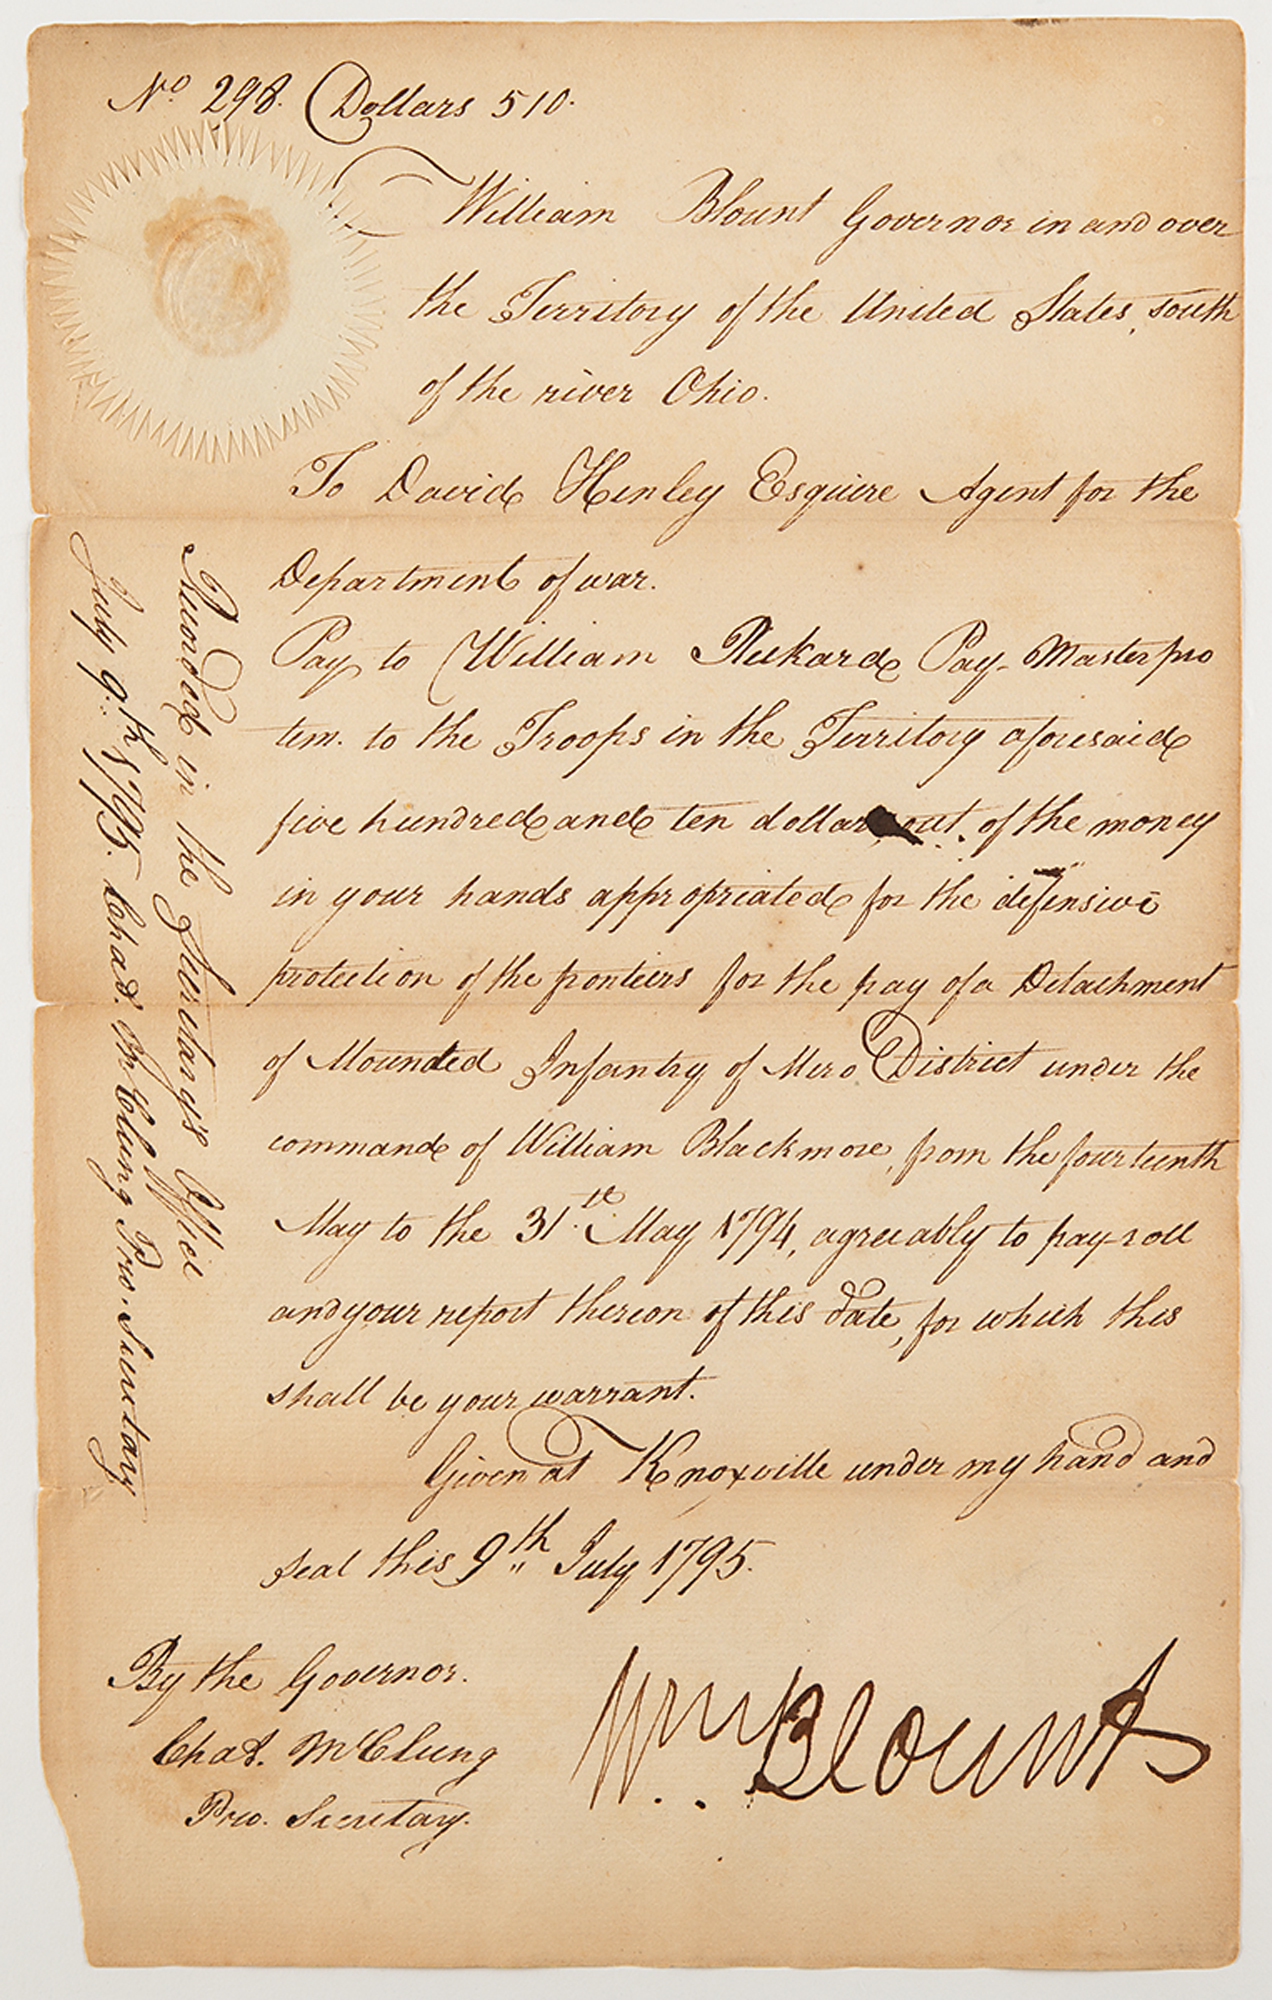 No. 298. Dollars 510.
William Blount Governor in and over
the Territory of the United States, south
of the river Ohio.
To David Henley Esquire Agent for the
Department of war.
Pay to William Rickard Pay-Master pro
tem. to the Troops in the Territory aforesaid
five hundred and ten dollars out of the money
in your hands appropriated for the defensive
protection of the frontiers for the pay of a Detachment
of Mounted Infantry of Mero District under the
command of William Blackmore, from the fourteenth
May to the 31st. May 1794, agreeably to pay-roll
and your report thereon of this date, for which this
shall be your warrant.
Given at Knoxville under my hand and
seal this 9th July 1795.
By the Governor.
Chas. McClung
Pro. Secretary.
Wm. Blount
Recorded in the Secretary's Office
July 9th 1795. Chas. McClung Pro. Secretary